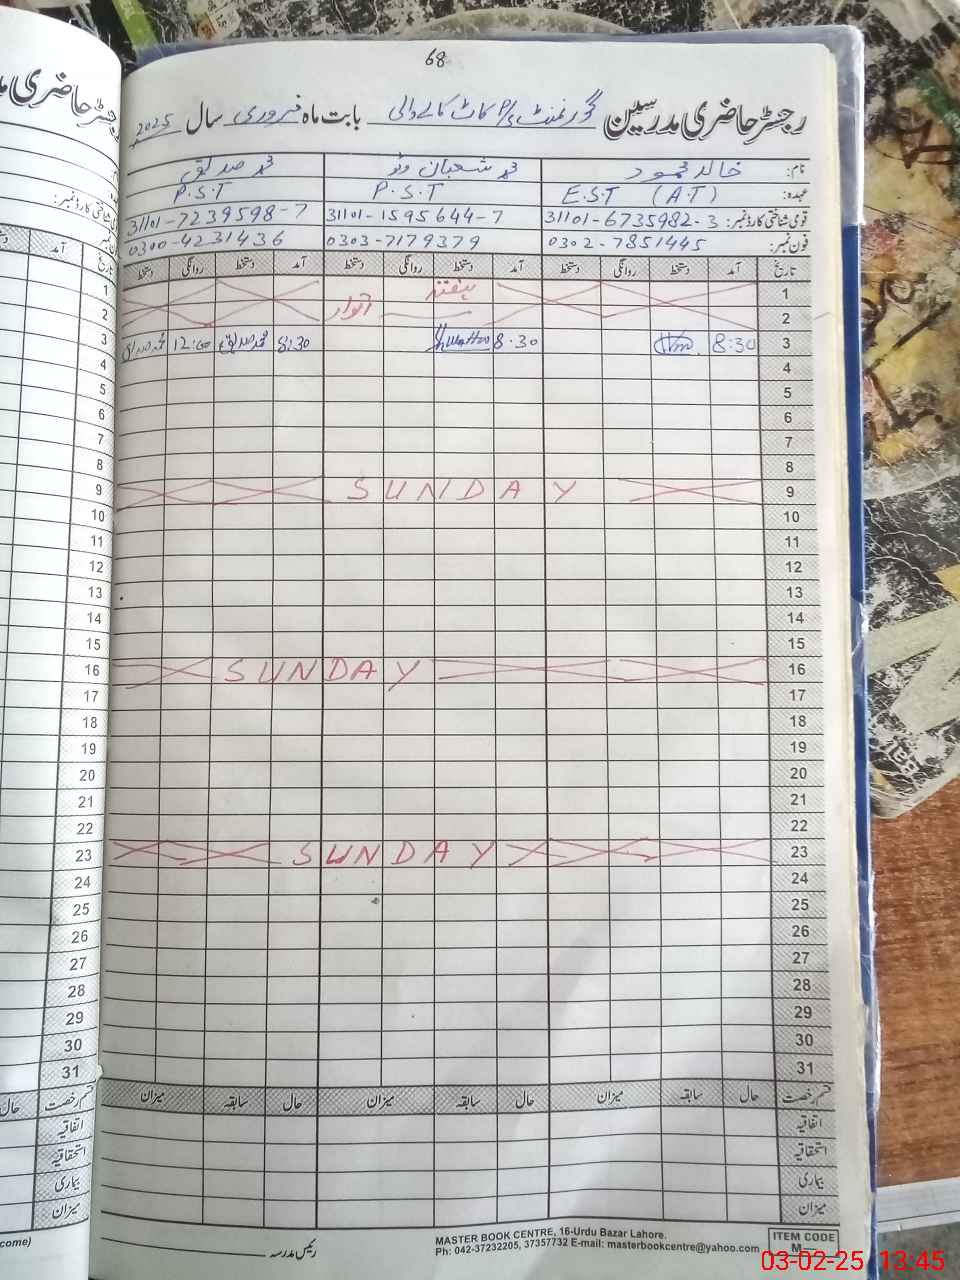 68
رجسٹر حاضری مدرسین گورنمنٹ P/S کاٹ کمالے والی بابت ماہ فروری سال 2025
نام: خالد محمود محمد شعبان وٹو محمد صدیق
عہدہ: E.S.T (A.T) P.S.T P.S.T
قومی شناختی کارڈ نمبر: 31101-6735982-3 31101-1595644-7 31101-7239598-7
فون نمبر: 0302-7851445 0303-7179379 0300-4231436
تاریخ آمد دستخط روانگی دستخط آمد دستخط روانگی دستخط آمد دستخط روانگی دستخط
1 ہفتہ
2 اتوار
3 8:30 8.30 8:30 محمد صدیق 12:00 محمد صدیق
4
5
6
7
8
9 SUNDAY
10
11
12
13
14
15
16 SUNDAY
17
18
19
20
21
22
23 SUNDAY
24
25
26
27
28
29
30
31
قسم رخصت حال سابقہ میزان حال سابقہ میزان حال سابقہ میزان
اتفاقیہ
استحقاقیہ
بیماری
میزان
رئیس مدرسہ
MASTER BOOK CENTRE, 16-Urdu Bazar Lahore.
Ph: 042-37232205, 37357732 E-mail: masterbookcentre@yahoo.com
ITEM CODE
M—
03-02-25 13:45
رجسٹر حاضری
تاریخ آمد
1
2
3
4
5
6
7
8
9
10
11
12
13
14
15
16
17
18
19
20
21
22
23
24
25
26
27
28
29
30
31
قسم رخصت حال
اتفاقیہ
استحقاقیہ
بیماری
میزان
come)